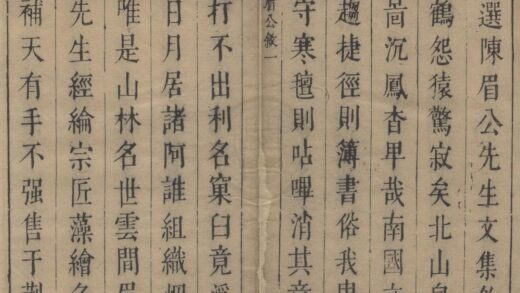 選陳眉公先生文集
鶴怨猿驚寂矣北山
啚沉鳳杳卑哉南國
趨捷徑則簿書俗我
守寒氊則呫嗶消其
眉公敘一
打不出利名窠臼竟
日月居諸阿誰組織
唯是山林名世雲間
先生經綸宗匠藻繪
補天有手不强售于